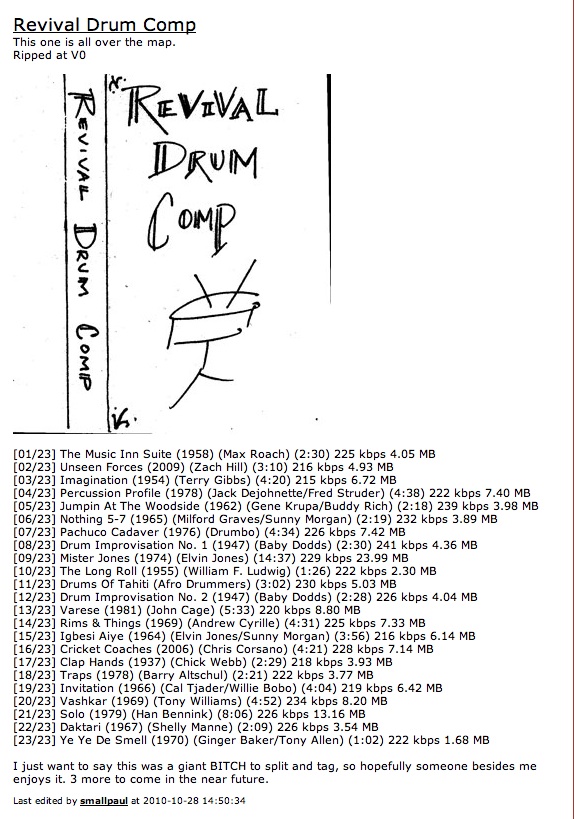 Revival Drum Comp
This one is all over the map.
Ripped at V0
REVIVAL DRUM COMP
REVIVAL
DRUM
COMP
[01/23] The Music Inn Suite (1958) (Max Roach) (2:30) 225 kbps 4.05 MB
[02/23] Unseen Forces (2009) (Zach Hill) (3:10) 216 kbps 4.93 MB
[03/23] Imagination (1954) (Terry Gibbs) (4:20) 215 kbps 6.72 MB
[04/23] Percussion Profile (1978) (Jack Dejohnette/Fred Struder) (4:38) 222 kbps 7.40 MB
[05/23] Jumpin At The Woodside (1962) (Gene Krupa/Buddy Rich) (2:18) 239 kbps 3.98 MB
[06/23] Nothing 5-7 (1965) (Milford Graves/Sunny Morgan) (2:19) 232 kbps 3.89 MB
[07/23] Pachuco Cadaver (1976) (Drumbo) (4:34) 226 kbps 7.42 MB
[08/23] Drum Improvisation No. 1 (1947) (Baby Dodds) (2:30) 241 kbps 4.36 MB
[09/23] Mister Jones (1974) (Elvin Jones) (14:37) 229 kbps 23.99 MB
[10/23] The Long Roll (1955) (William F. Ludwig) (1:26) 222 kbps 2.30 MB
[11/23] Drums Of Tahiti (Afro Drummers) (3:02) 230 kbps 5.03 MB
[12/23] Drum Improvisation No. 2 (1947) (Baby Dodds) (2:28) 226 kbps 4.04 MB
[13/23] Varese (1981) (John Cage) (5:33) 220 kbps 8.80 MB
[14/23] Rims & Things (1969) (Andrew Cyrille) (4:31) 225 kbps 7.33 MB
[15/23] Igbesi Aiye (1964) (Elvin Jones/Sunny Morgan) (3:56) 216 kbps 6.14 MB
[16/23] Cricket Coaches (2006) (Chris Corsano) (4:21) 228 kbps 7.14 MB
[17/23] Clap Hands (1937) (Chick Webb) (2:29) 218 kbps 3.93 MB
[18/23] Traps (1978) (Barry Altschul) (2:21) 222 kbps 3.77 MB
[19/23] Invitation (1966) (Cal Tjader/Willie Bobo) (4:04) 219 kbps 6.42 MB
[20/23] Vashkar (1969) (Tony Williams) (4:52) 234 kbps 8.20 MB
[21/23] Solo (1979) (Han Bennink) (8:06) 226 kbps 13.16 MB
[22/23] Daktari (1967) (Shelly Manne) (2:09) 226 kbps 3.54 MB
[23/23] Ye Ye De Smell (1970) (Ginger Baker/Tony Allen) (1:02) 222 kbps 1.68 MB
I just want to say this was a giant BITCH to split and tag, so hopefully someone besides me
enjoys it. 3 more to come in the near future.
Last edited by smallpaul at 2010-10-28 14:50:34